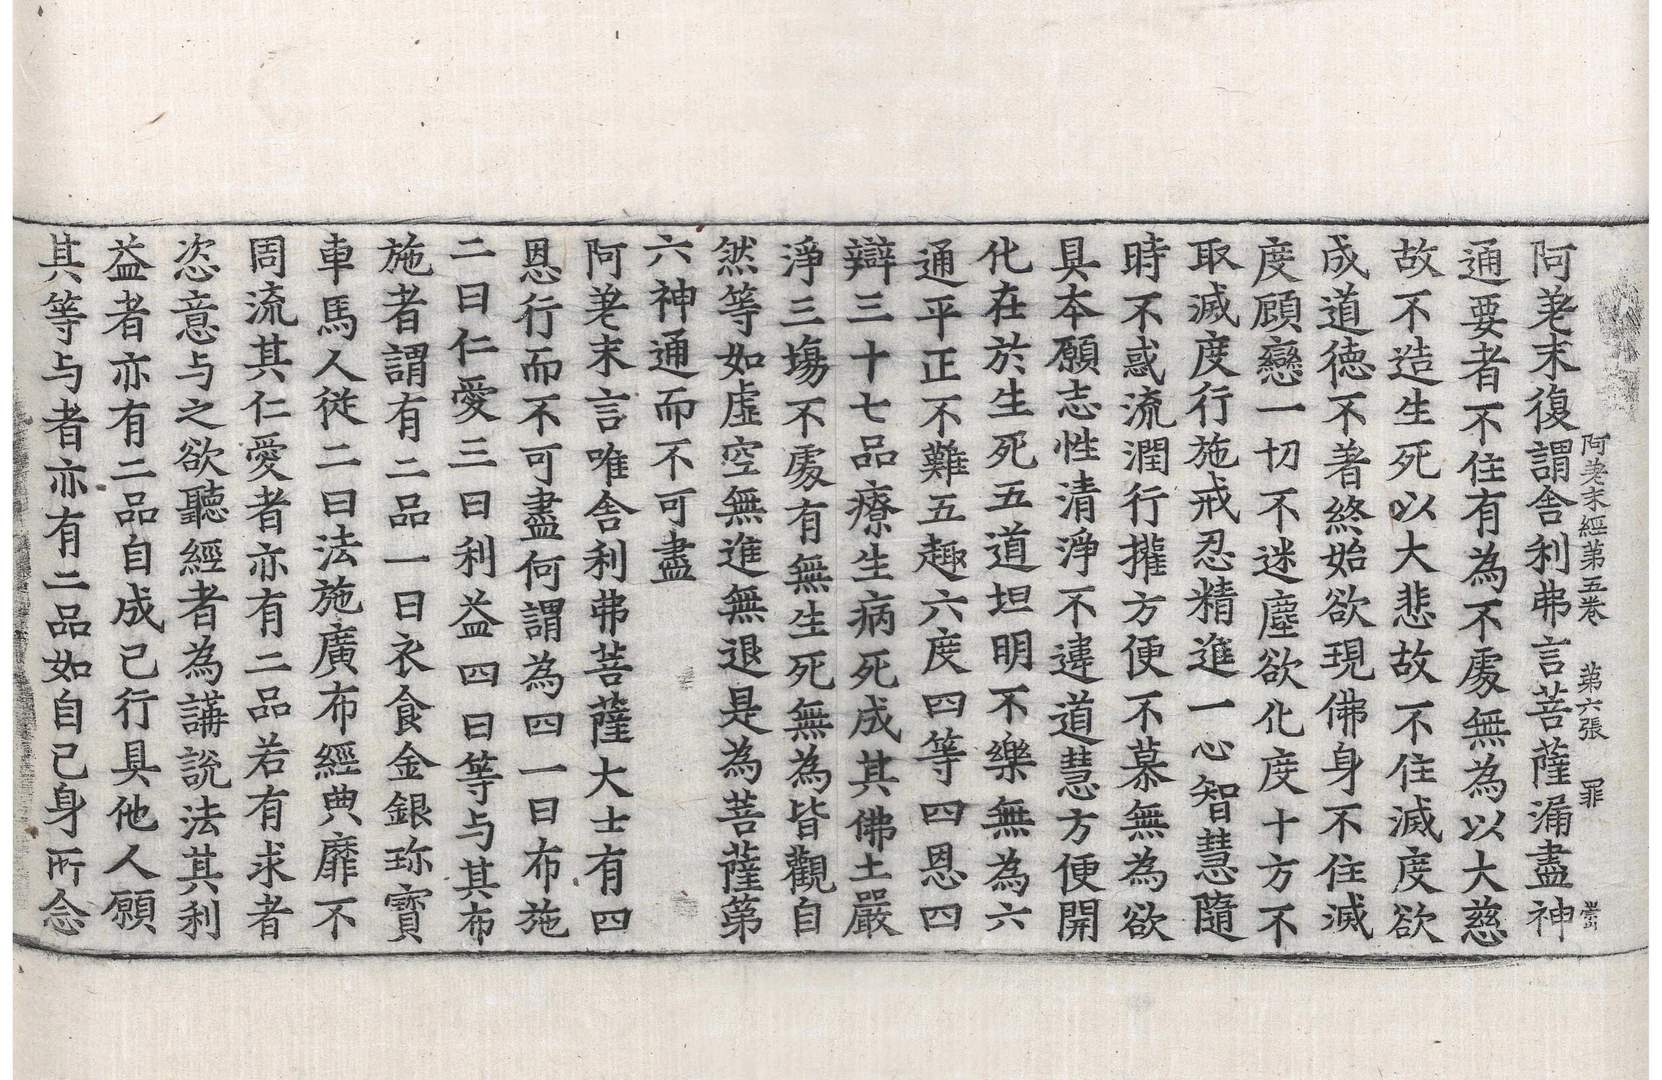 阿差末經第五卷　第六張　罪
阿差末復謂舍利弗言菩薩漏盡神
通要者不住有為不處無為以大慈
故不造生死以大悲故不住滅度欲
成道德不著終始欲現佛身不住滅
度顧戀一切不迷塵欲化度十方不
取滅度行施戒忍精進一心智慧隨
時不惑流潤行攉方便不慕無為欲
具本願志性清淨不違道慧方便開
化在於生死五道坦明不樂無為六
通平正不難五趣六度四等四恩四
辯三十七品療生病死成其佛土嚴
淨三塲不處有無生死無為皆觀自
然等如虛空無進無退是為菩薩第
六神通而不可盡
阿差末言唯舍利弗菩薩大士有四
恩行而不可盡何謂為四一曰布施
二曰仁愛三曰利益四曰等与其布
施者謂有二品一曰衣食金銀珎寶
車馬人從二曰法施廣布經典靡不
周流其仁愛者亦有二品若有求者
恣意与之欲聽經者為講說法其利
益者亦有二品自成己行具他人願
其等与者亦有二品如自己身所念